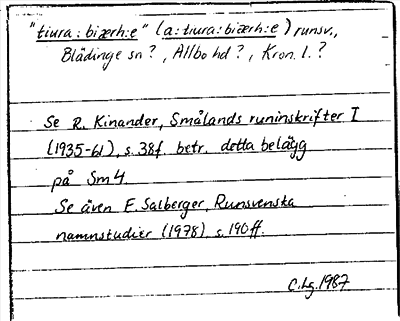 "tiura : biærh:e" (a:tiura:biærh:e) runsv.,
Blädinge sn?, Allbo hd?, Kron. l.?
Se R. Kinander, Smålands runinskrifter I
(1935-61), s. 38f. betr. detta belägg
på Sm 4.
Se även E. Salberger, Runsvenska
namnstudier (1978), s. 190ff.
C.Lg. 1987